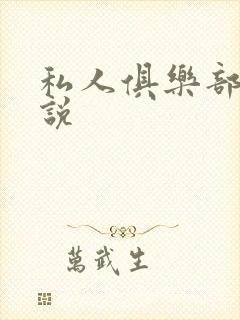 私人俱樂部
說
萬武生